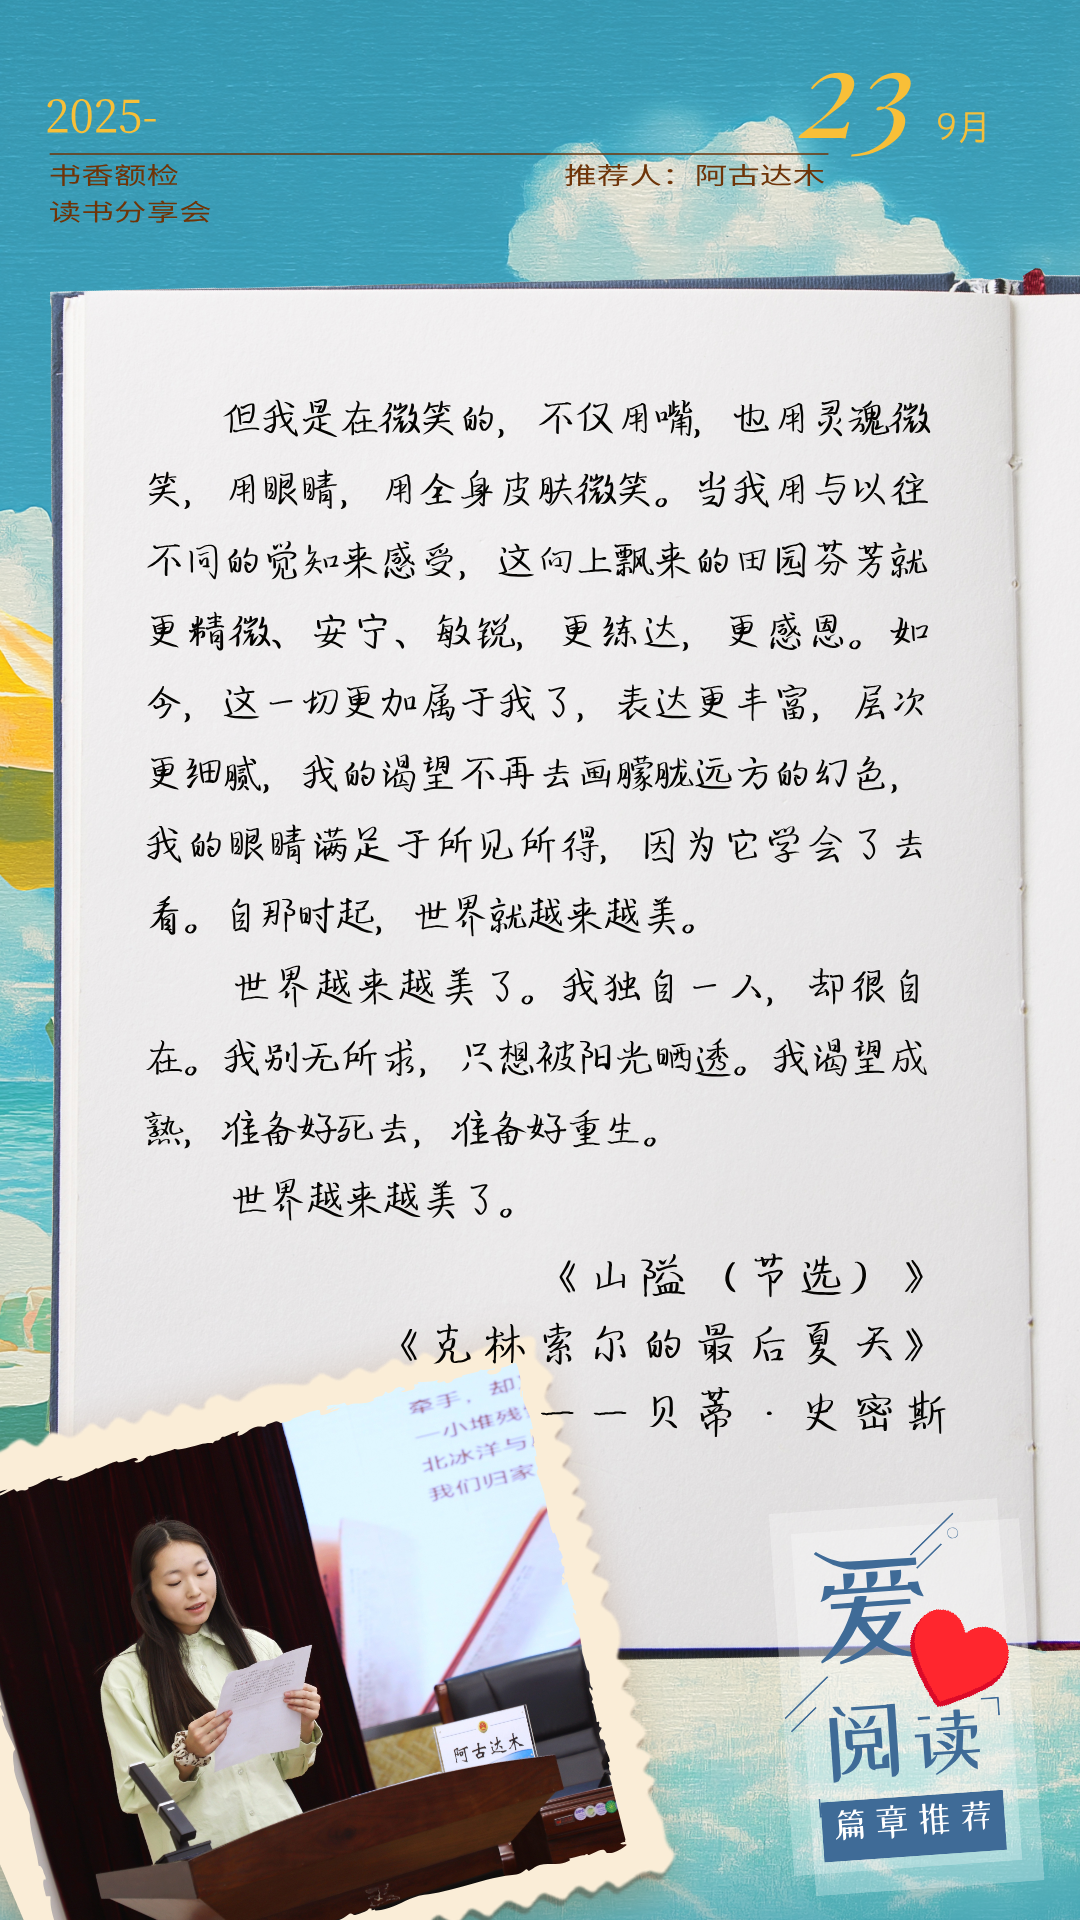 2025-
23 9月
书香额检
推荐人：阿古达木
读书分享会
但我是在微笑的，不仅用嘴，也用灵魂微
笑，用眼睛，用全身皮肤微笑。当我用与以往
不同的觉知来感受，这向上飘来的田园芬芳就
更精微、安宁、敏锐，更练达，更感恩。如
今，这一切更加属于我了，表达更丰富，层次
更细腻，我的渴望不再去画朦胧远方的幻色，
我的眼睛满足于所见所得，因为它学会了去
看。自那时起，世界就越来越美。
世界越来越美了。我独自一人，却很自
在。我别无所求，只想被阳光晒透。我渴望成
熟，准备好死去，准备好重生。
世界越来越美了。
《山隘（节选）》
《克林索尔的最后夏天》
——贝蒂·史密斯
牵手，却
一小堆残
北冰洋与
我们归家
阿古达木
爱
阅读
篇章推荐